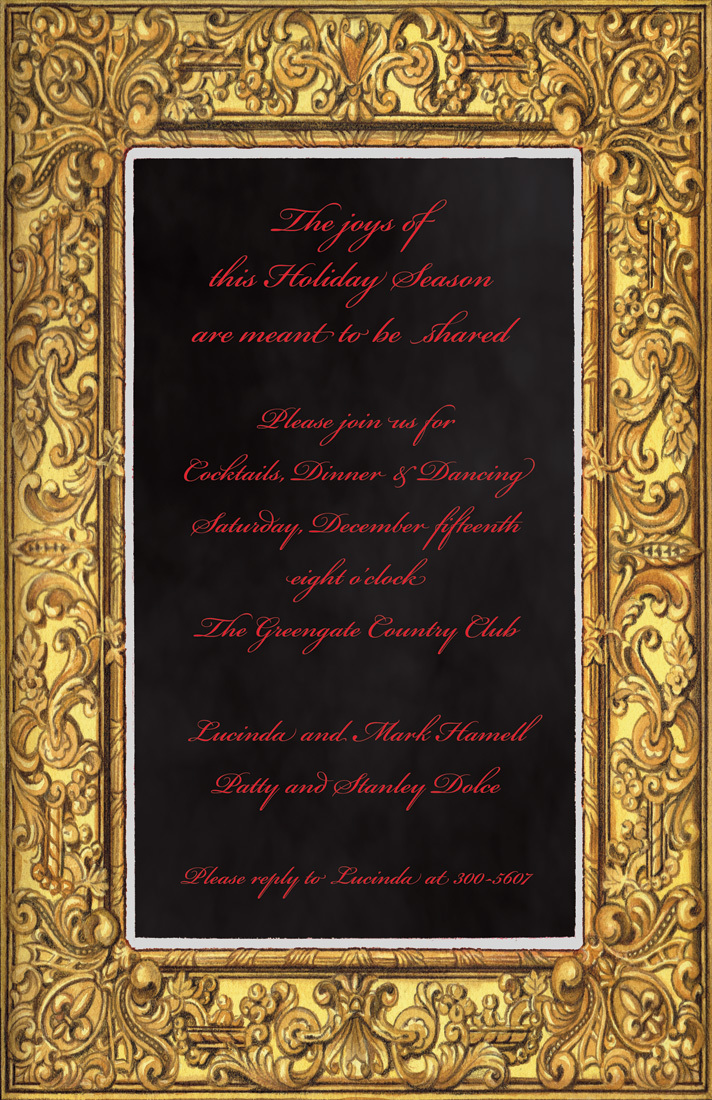 The joys of
this Holiday Season
are meant to be shared
Please join us for
Cocktails, Dinner & Dancing
Saturday, December fifteenth
eight o'clock
The Greengate Country Club
Lucinda and Mark Hamell
Patty and Stanley Dolce
Please reply to Lucinda at 300-5607